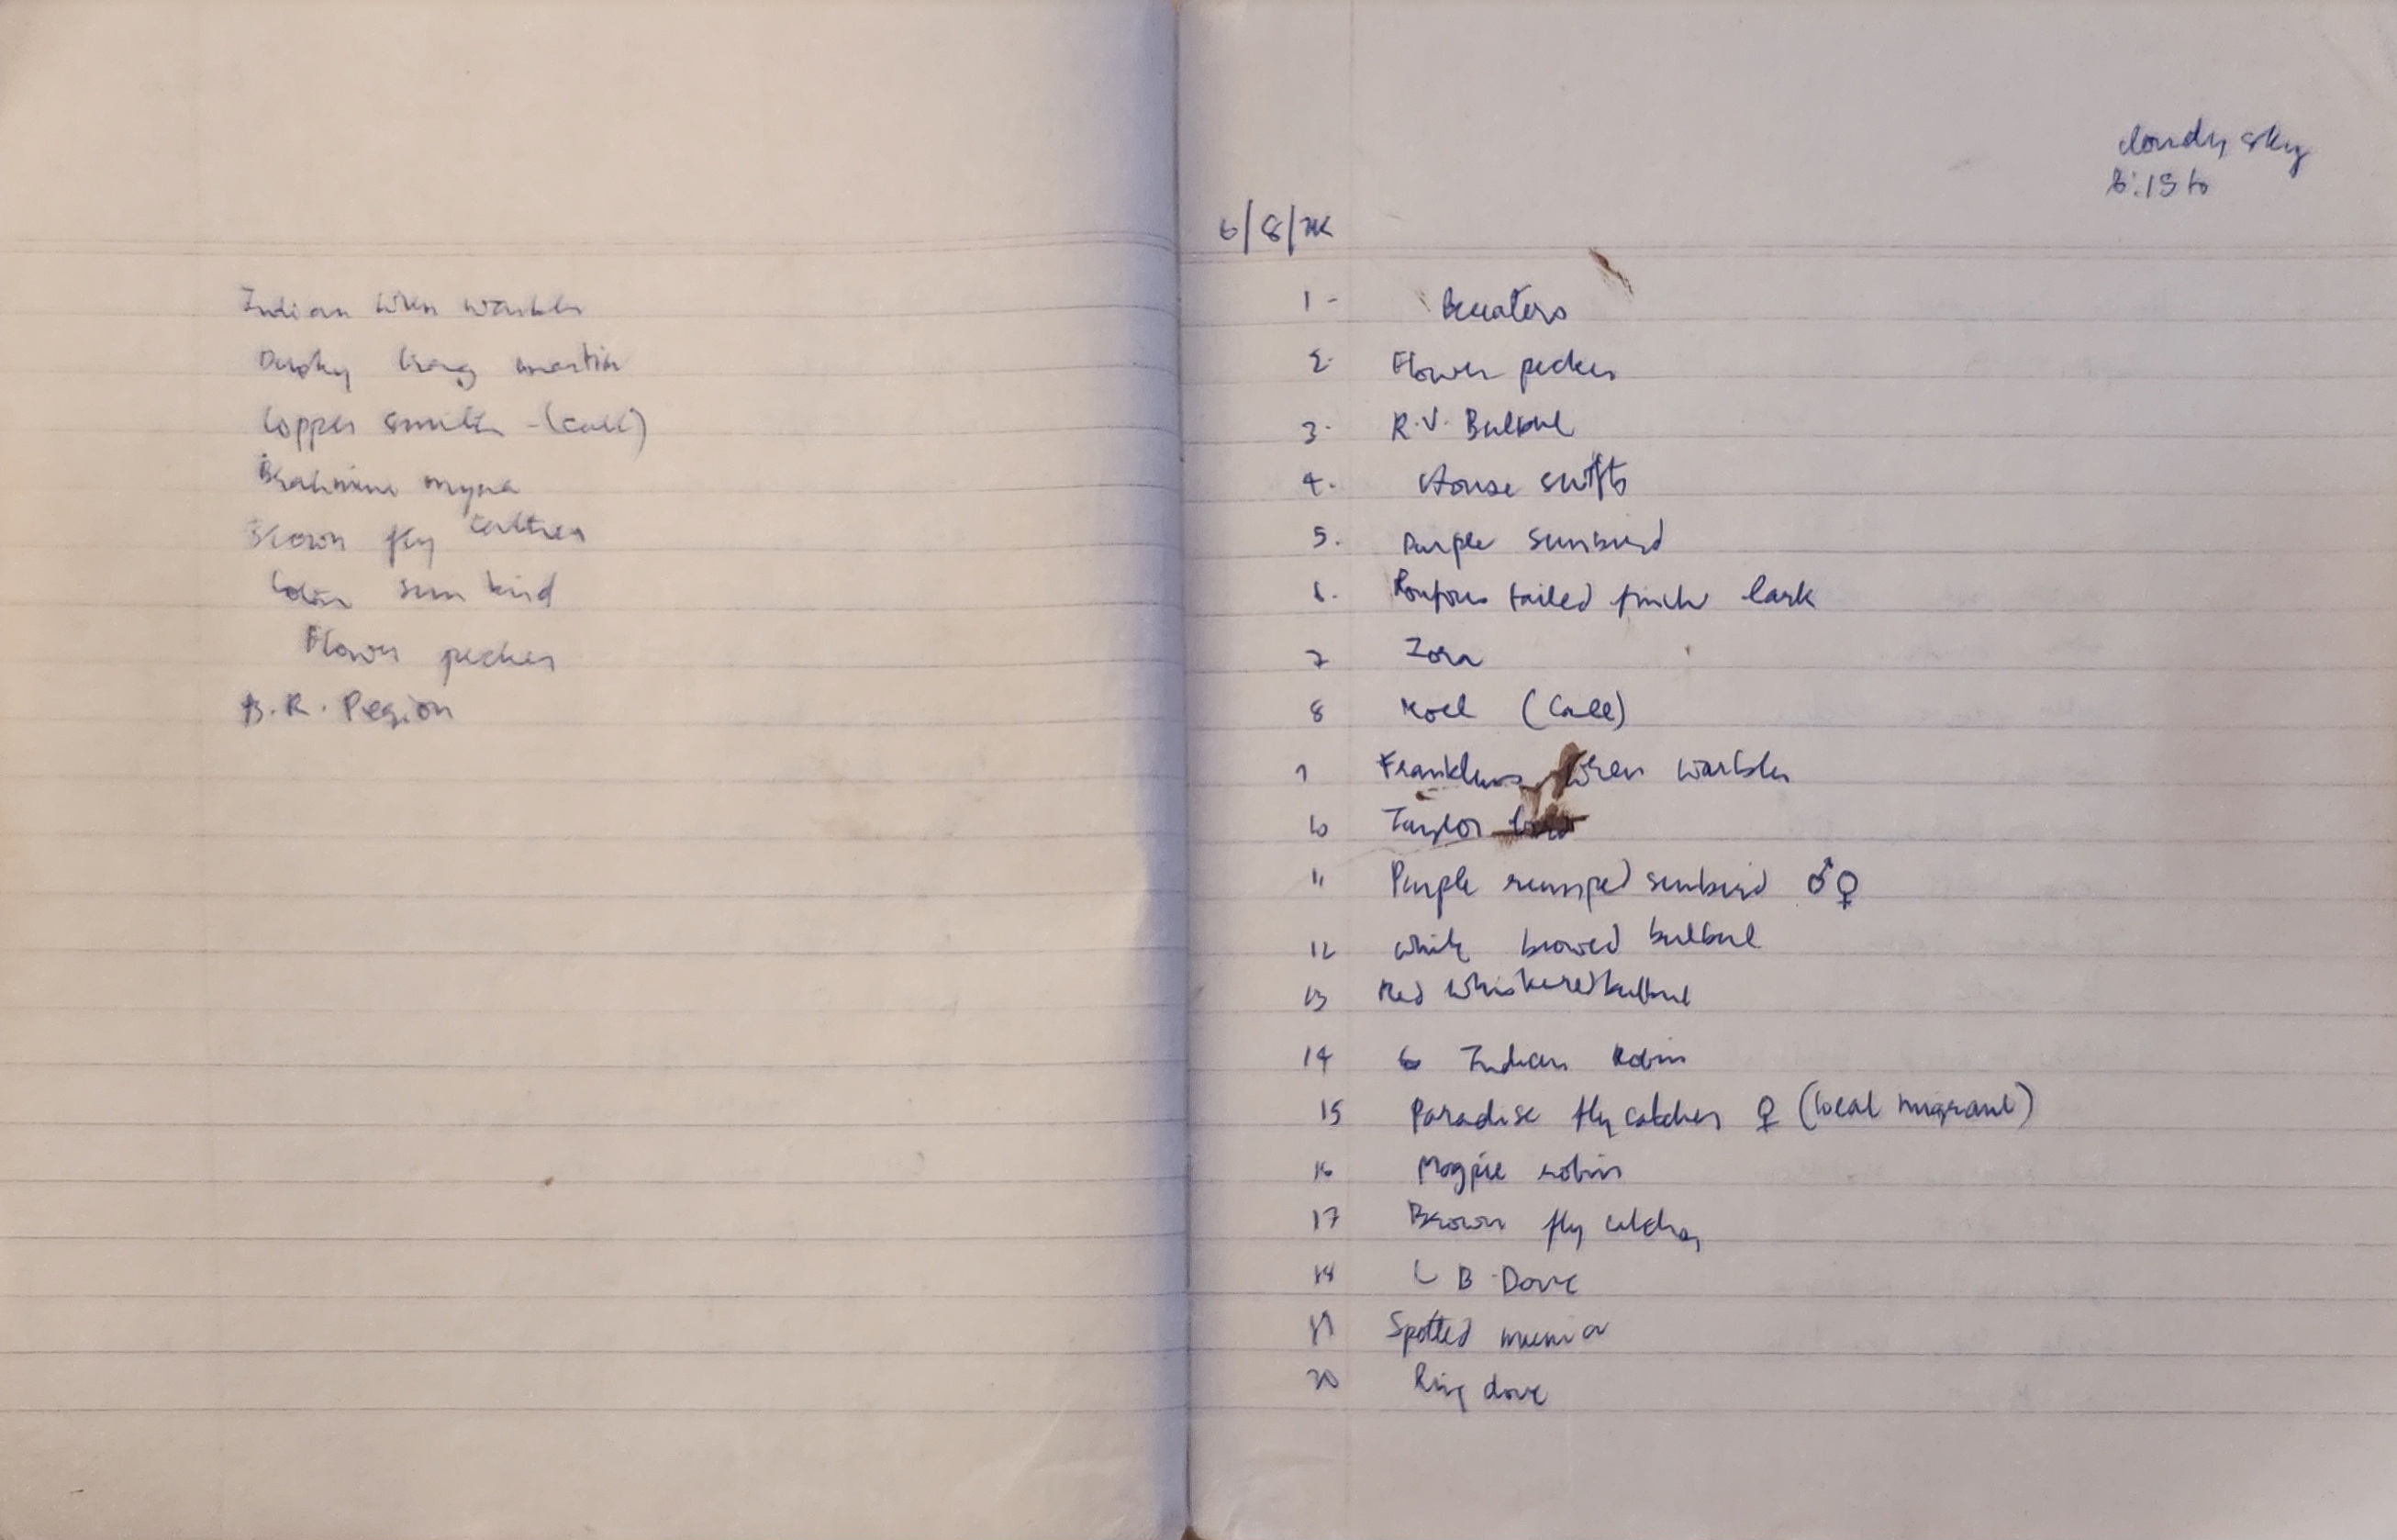 Indian Wren warbler
Dusky Crag martin
Copper smith - (call)
Brahmini myna
Brown fly catcher
Lotens sun bird
Flower pecker
B.R. Pegion
cloudy sky
6:15 to
6/8/
1- Beeaters
2. Flower pecker
3. R.V. Bulbul
4. House swifts
5. Purple Sunbird
6. Roufous tailed finch lark
7 Iora
8 Koel (Call)
9 Franklins Wren warbler
10 Taylor bird
11 Purple rumped sunbird ♂♀
12 White browed bulbul
13 Red whiskered bulbul
14 Indian Robin
15 Paradise fly catcher ♀ (local migrant)
16 Magpie robin
17 Brown fly catcher
18 L B Dove
19 Spotted munia
20 Ring dove